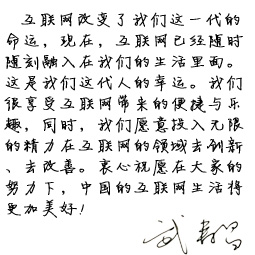 互联网改变了我们这一代的
命运，现在，互联网已经随时
随刻融入在我们的生活里面。
这是我们这代人的幸运。我们
很享受互联网带来的便捷与乐
趣，同时，我们愿意投入无限
的精力在互联网的领域去创新
、去改善。衷心祝愿在大家的
努力下，中国的互联网生活将
更加美好！